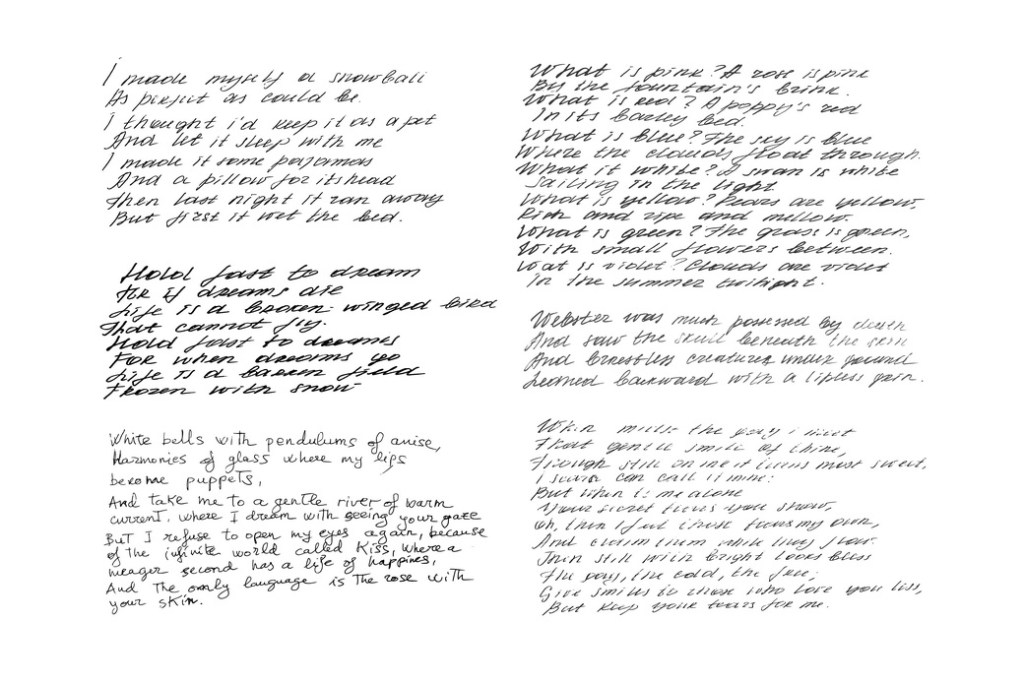 I made myself a snowball
As perfect as could be.
I thought i'd keep it as a pet
And let it sleep with me
I made it some pajamas
And a pillow for its head
Then last night it ran away
But first it wet the bed.
Hold fast to dream
For if dreams die
Life is a broken-winged bird
That cannot fly.
Hold fast to dreames
For when dreams go
Life is a barren field
Frozen with snow
White bells with pendulums of anise,
Harmonies of glass where my lips
become puppets,
And take me to a gentle river of warm
current, where I dream with seeing your gaze
But I refuse to open my eyes again, because
of the infinite world called Kiss, where a
meager second has a life of happines,
And the only language is the rose with
your skin.
What is pink? A rose is pink
By the fountain's brink.
What is red? A poppy's red
In its barley bed.
What is blue? The sky is blue
Where the clouds float through.
What it white? A swan is white
Sailing in the light
What is yellow? Pears are yellow,
Rich and ripe and mellow.
What is green? The grass is green,
With small flowers between.
Wat is violet? Clouds are violet
In the summer twilight.
Webster was much possesed by death
And saw the skull beneath the skin
And breastless creatures under ground
Leaned backward with a lipless grin.
When the gay i meet
That gentle smile of thine,
Though still on me it turns most sweet,
I can call it mine:
But when is me alone
Your secret tears you show,
oh, then I feel those tears my own,
And claim them while they flow.
Then still with bright looks bless
The gay, the cold, the free;
Give smiles to those who love you less,
But keep your tears for me.